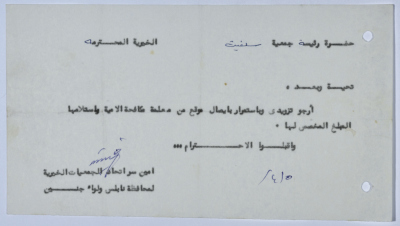 حضرة رئيسة جمعية سلفيت الخيرية المحترمة
تحية وبعد ،
أرجو تزويدي وباستمرار بايصال موقع من معلمة مكافحة الامية باستلامها
المبلغ المخصص لها .
واقبلوا الاحترام ،،،
امين سر اتحاد الجمعيات الخيرية
لمحافظة نابلس ولواء جنين